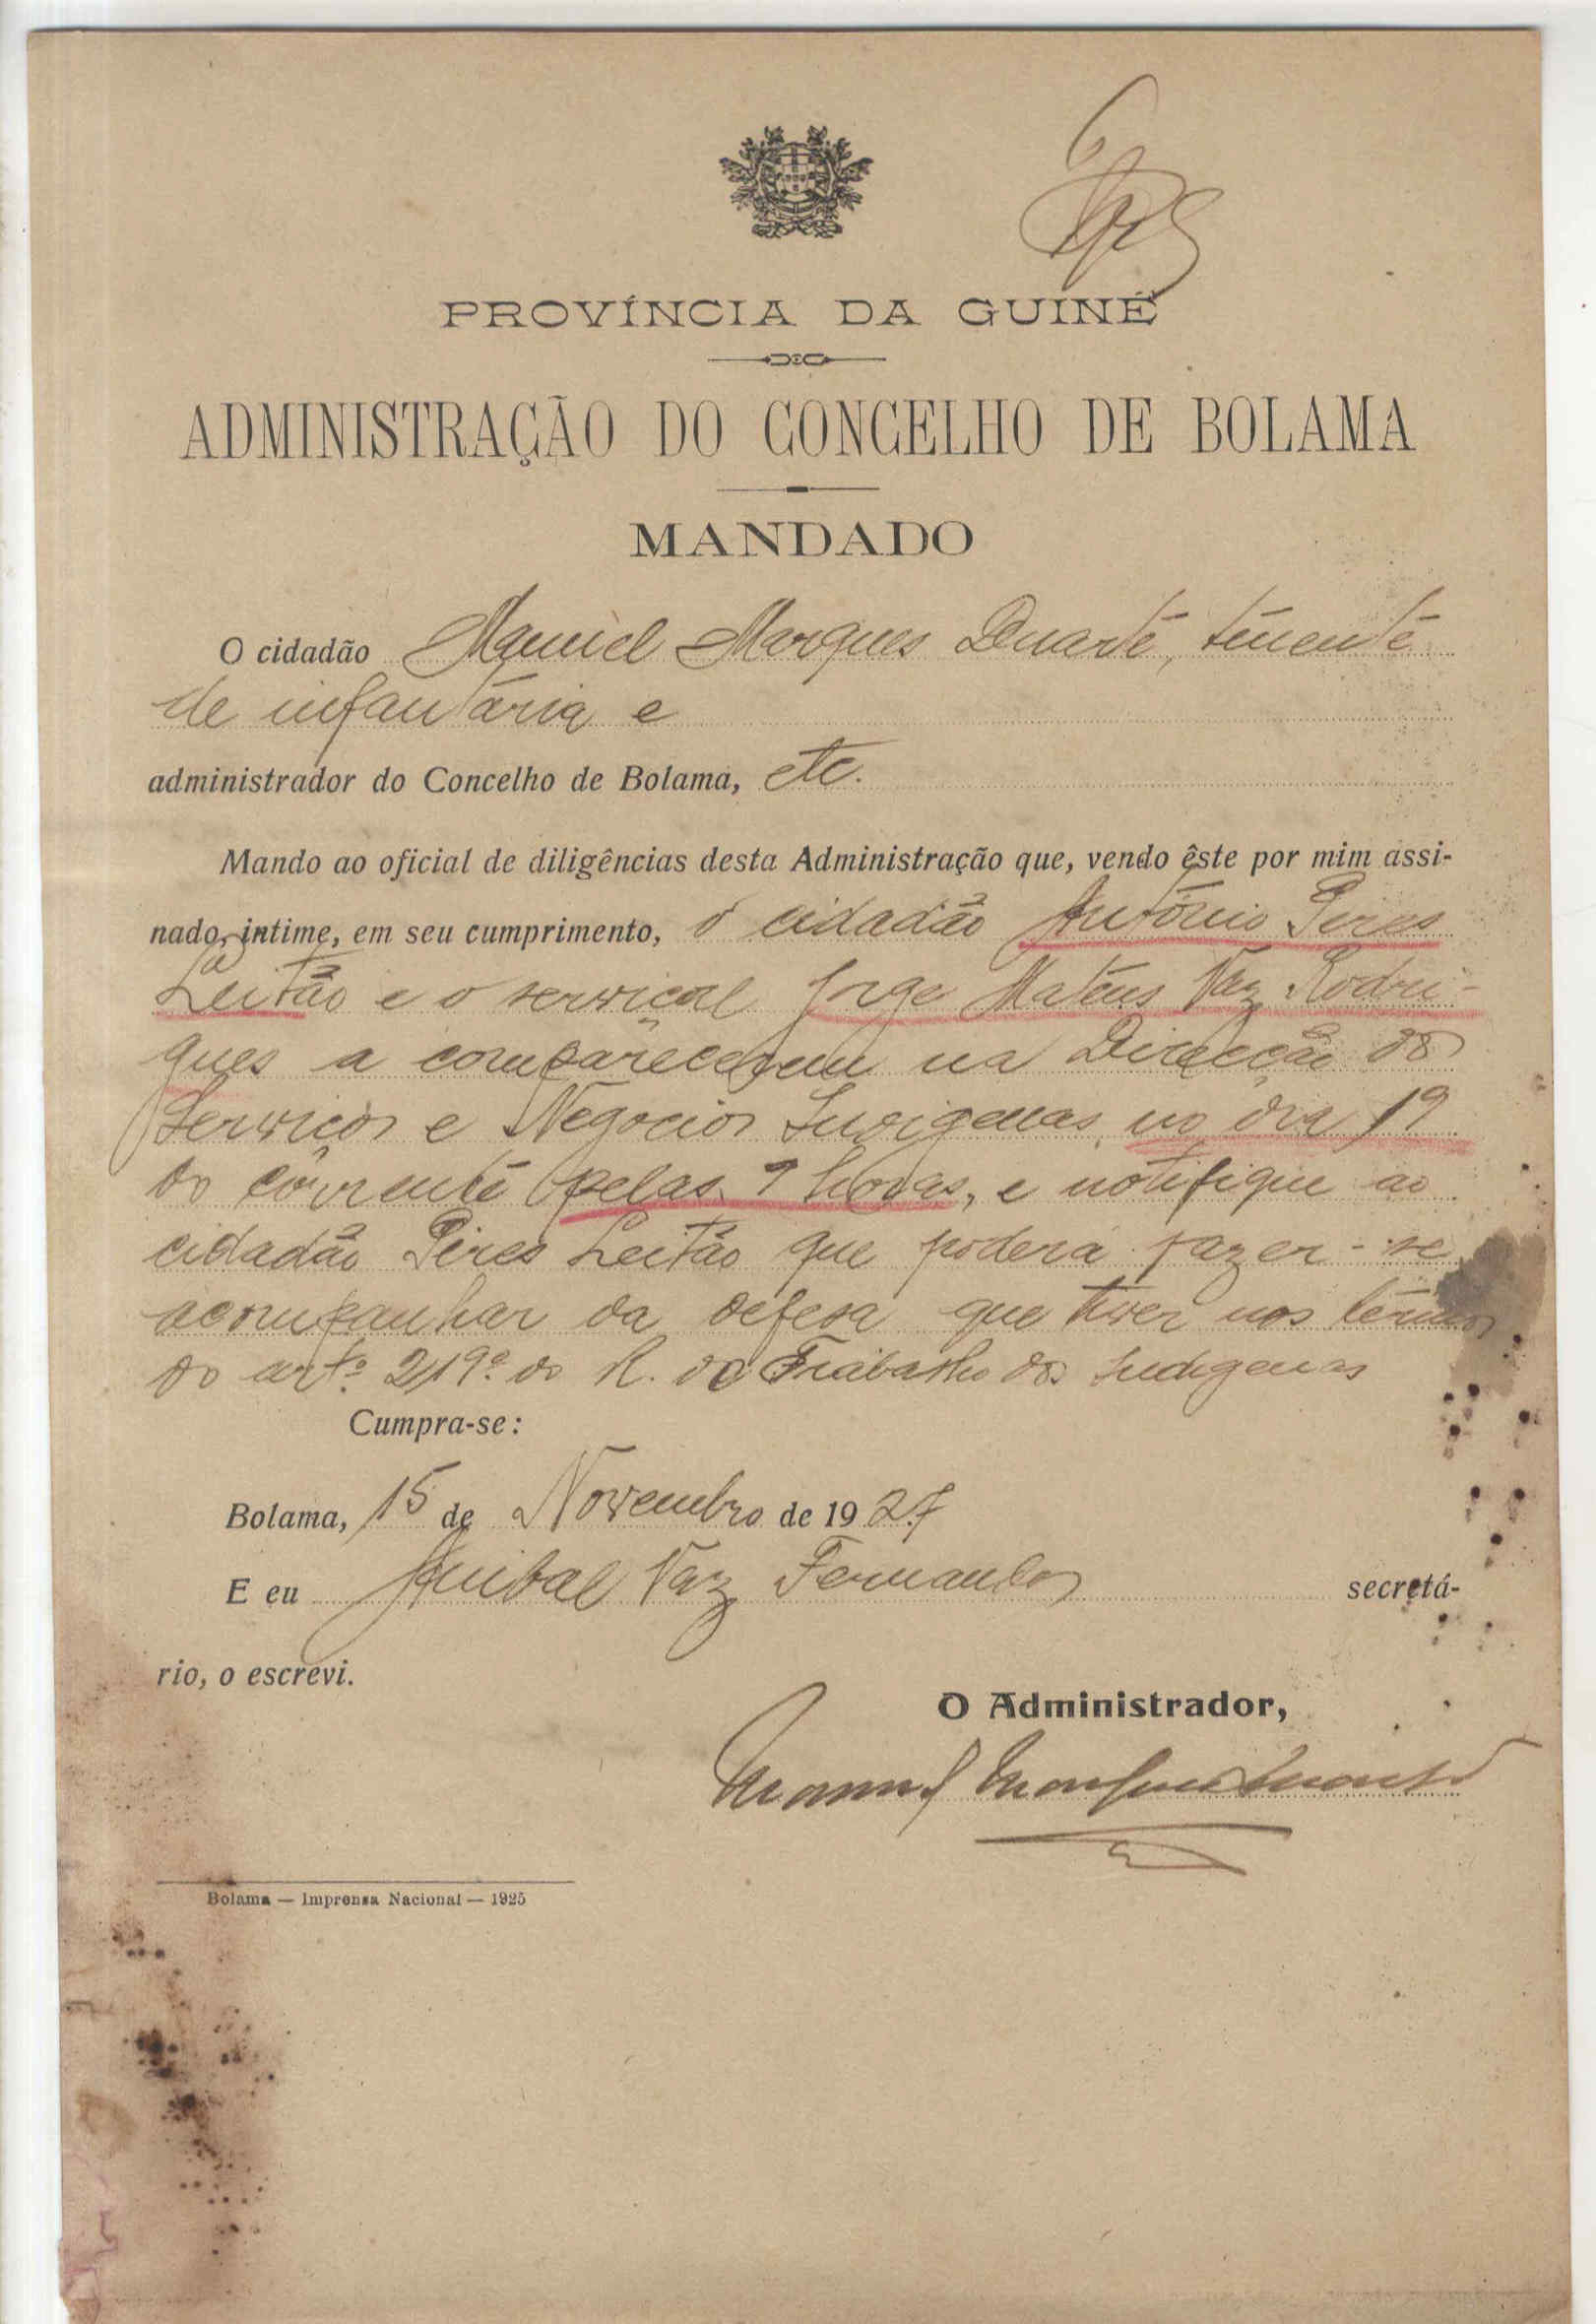 PROVÍNCIA DA GUINÉ
ADMINISTRAÇÃO DO CONCELHO DE BOLAMA
MANDADO
O cidadão Manuel Marques Duarte, tenente
de infantaria e
administrador do Concelho de Bolama, etc.
Mando ao oficial de diligências desta Administração que, vendo êste por mim assi-
nado, intime, em seu cumprimento, o cidadão António Pires
Leitão e o serviçal Jorge Mateus Vaz Rodri-
gues a comparecerem na Direcção dos
Serviços e Negocios Indigenas, no dia 19
do corrente pelas 9 horas, e notifique ao
cidadão Pires Leitão que poderá fazer-se
acompanhar da defesa que tiver nos têrmos
do artº 219º do R. do Trabalho dos Indigenas
Cumpra-se:
Bolama, 15 de Novembro de 1927
E eu Anibal Vaz Fernandes secretá-
rio, o escrevi.
O Administrador,
Manuel Marques Duarte
Bolama — Imprensa Nacional — 1925